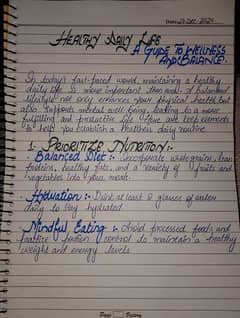 23-DEC-2024
HEALTHY DAILY LIFE
A GUIDE TO WELLNESS
AND BALANCE
In today's fast-paced world, maintaining a healthy
daily life is more important than ever. A balanced
lifestyle not only enhances your physical health but
also supports mental well being, leading to a more
fulfilling and productive life. Here are keep elements
to help you establish a Healthier daily routine.
1. PRIORITIZE NUTRITION:-
Balanced Diet:- Incorporate whole grains, lean
proteins, healthy fats, and a variety of fruits and
vegetables into your meals.
Hydration:- Drink at least 8 glasses of water
daily to stay hydrated
Mindful Eating:- Avoid processed foods and
practice portion control to maintain a healthy
weight and energy levels